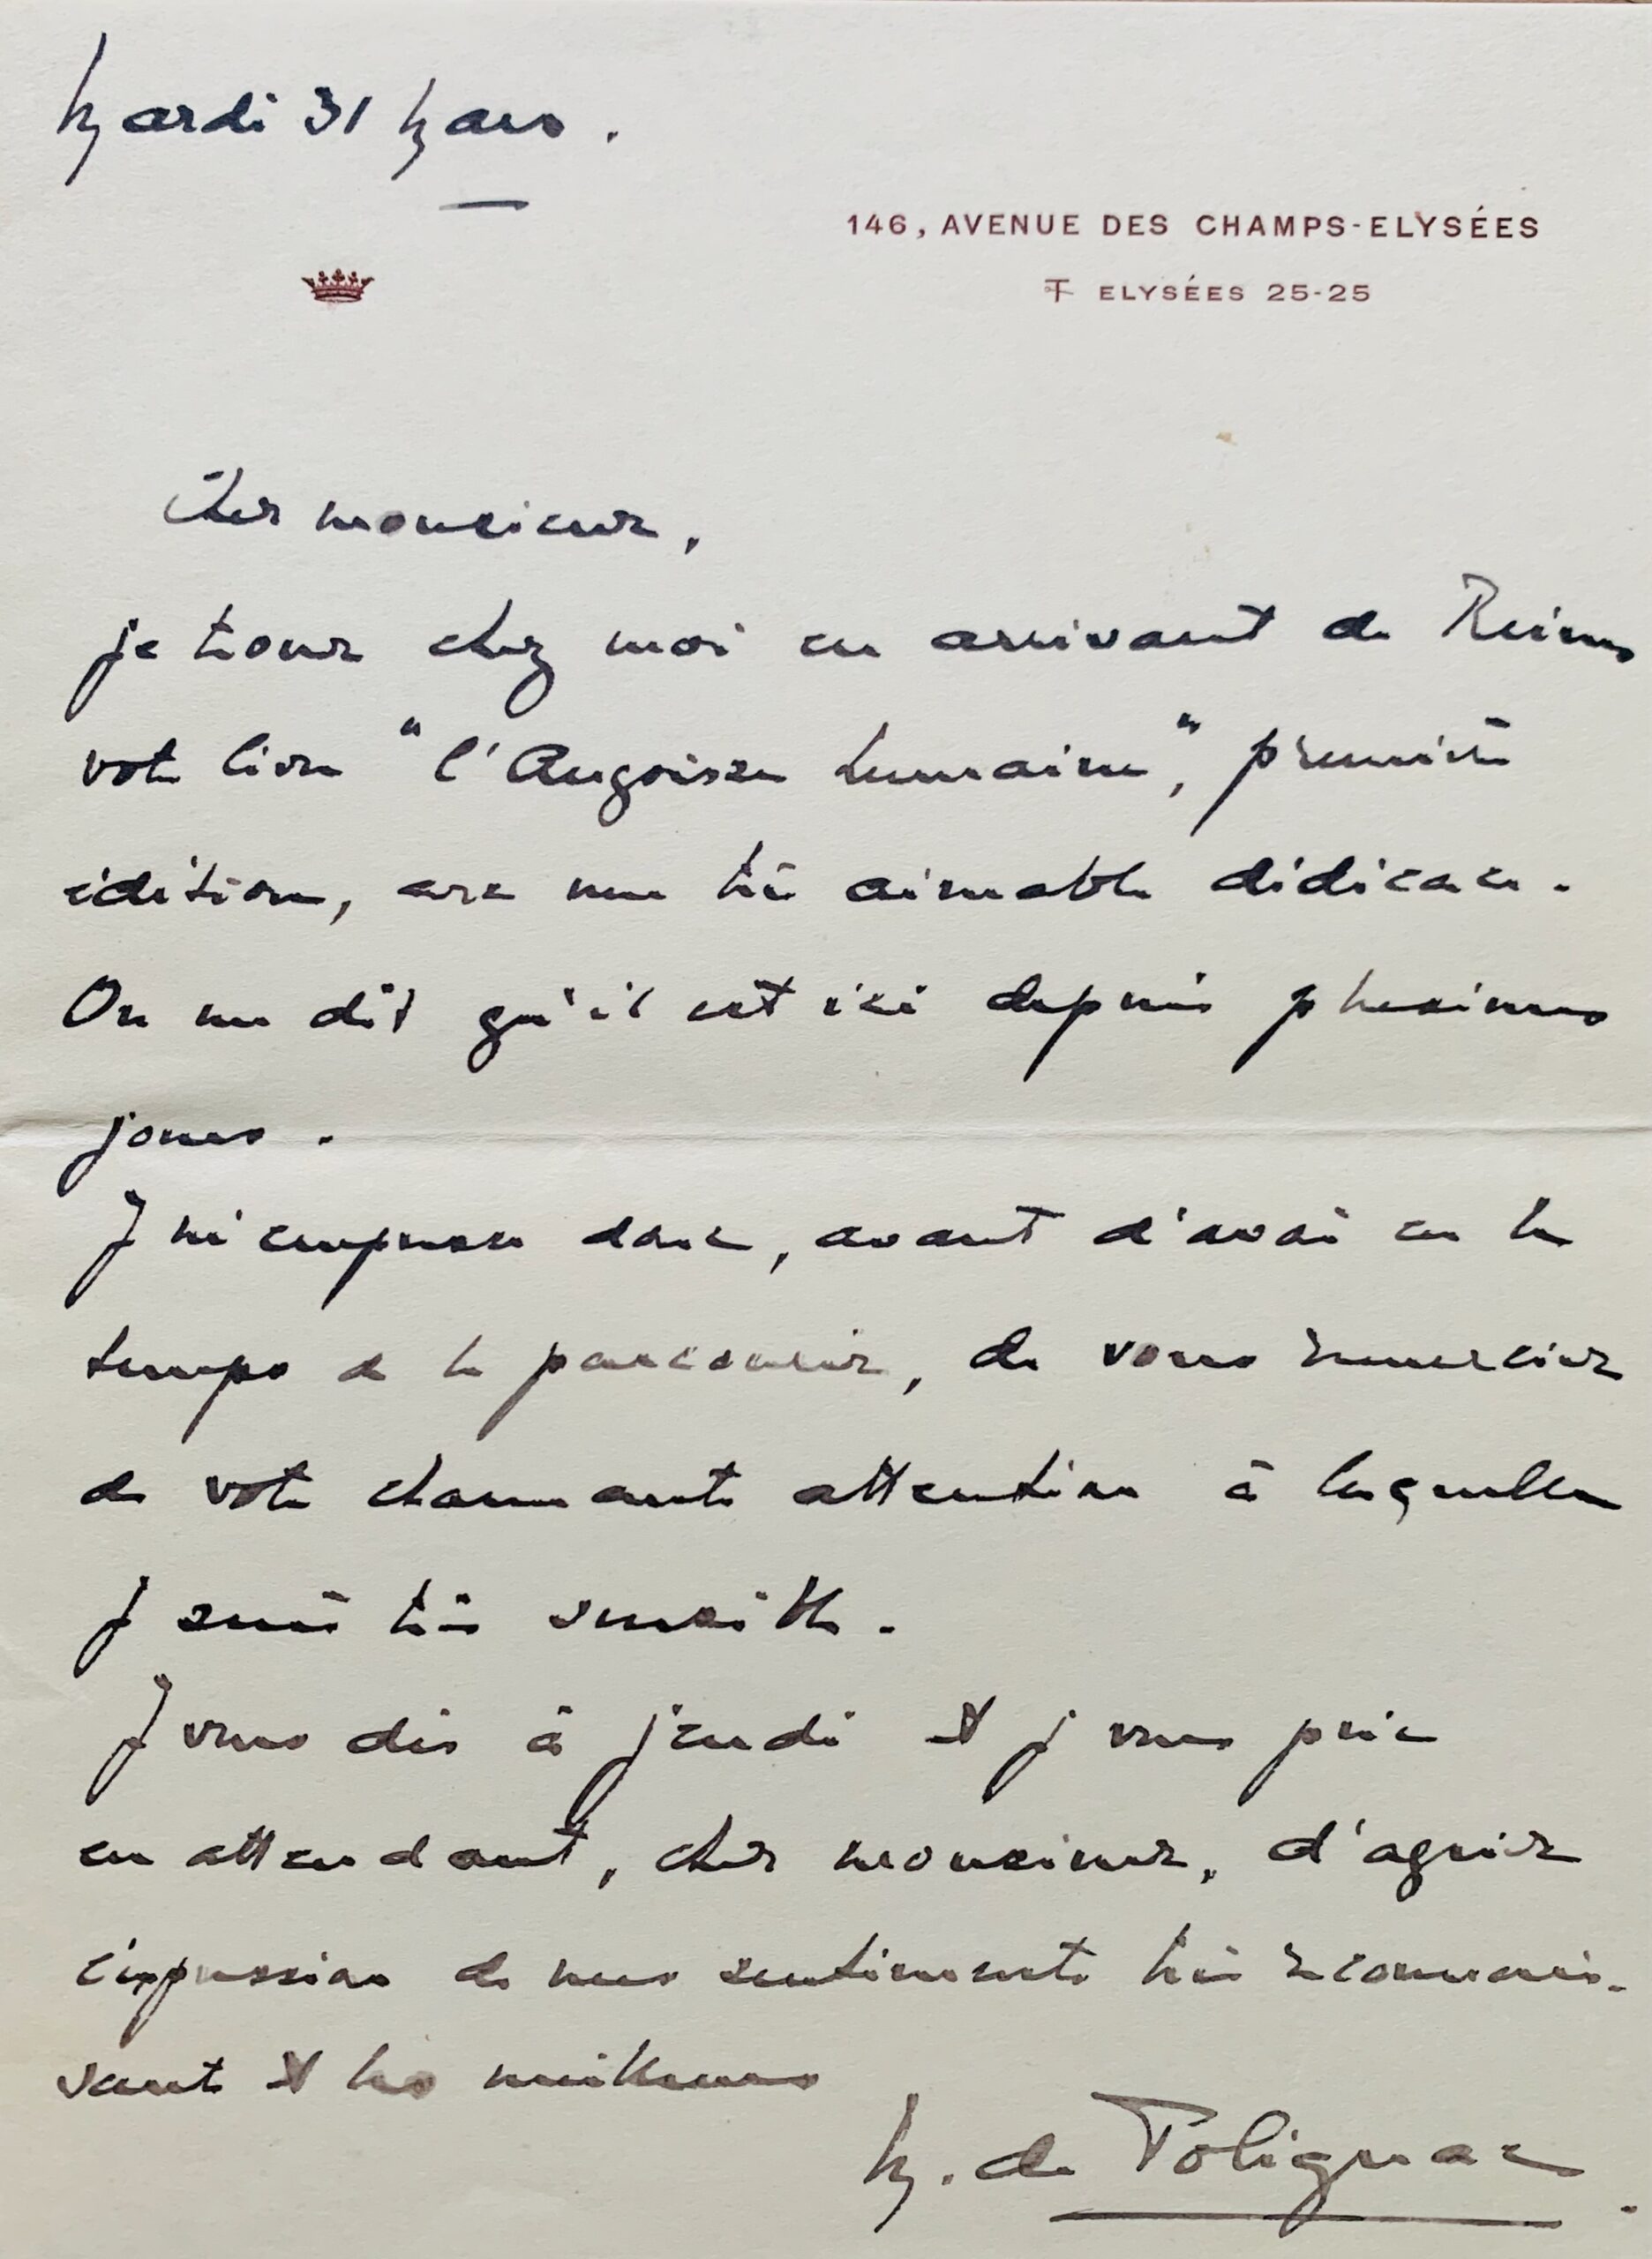 Mardi 31 Mars.
146, AVENUE DES CHAMPS-ELYSÉES
T ELYSÉES 25-25
Cher monsieur,
je trouve chez moi en arrivant de Reims
votre livre "l'Angoisse humaine", première
édition, avec une très aimable dédicace.
On me dit qu'il est ici depuis plusieurs
jours.
Je m'empresse donc, avant d'avoir eu le
temps de le parcourir, de vous remercier
de votre charmante attention à laquelle
je suis très sensible.
Je vous dis à jeudi et je vous prie
en attendant, cher monsieur, d'agréer
l'expression de mes sentiments très reconnais-
sants et les meilleurs
M. de Polignac.